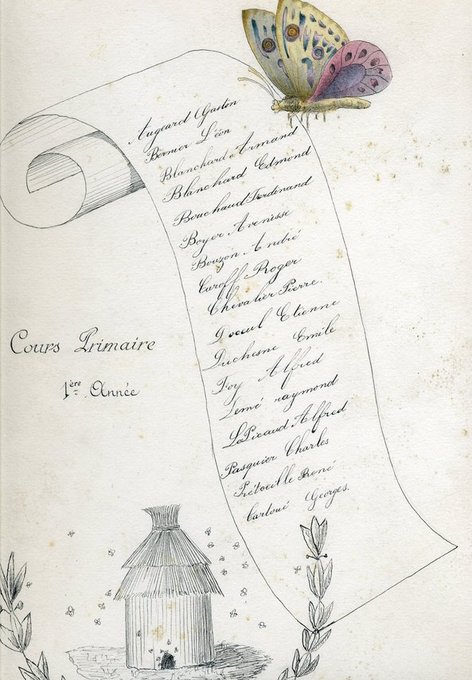 Augeard Gaston
Bernier Léon
Blanchard Armand
Blanchard Edmond
Bouchaud Ferdinand
Boyer
Bouzon André
Caroff Roger
Chevalier Pierre.
Etienne
Duchesne Emile
Foy Alfred
Lemé raymond
Alfred
Pasquier Charles
René
Georges.
Cours Primaire
1ère Année